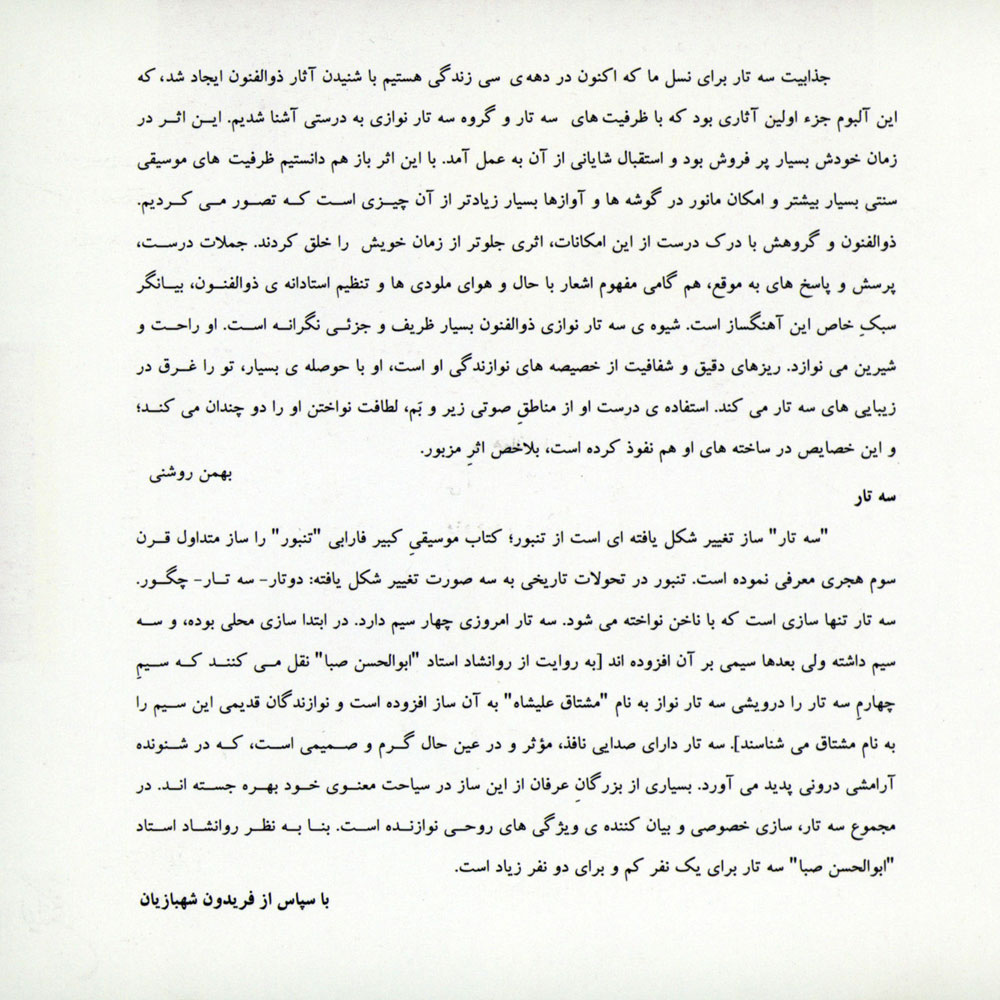 جذابیت سه تار برای نسل ما که اکنون در دهه ی سی زندگی هستیم با شنیدن آثار ذوالفنون ایجاد شد، که
این آلبوم جزء اولین آثاری بود که با ظرفیت های سه تار و گروه سه تار نوازی به درستی آشنا شدیم. این اثر در
زمان خودش بسیار پر فروش بود و استقبال شایانی از آن به عمل آمد. با این اثر باز هم دانستیم ظرفیت های موسیقی
سنتی بسیار بیشتر و امکان مانور در گوشه ها و آوازها بسیار زیادتر از آن چیزی است که تصور می کردیم.
ذوالفنون و گروهش با درک درست از این امکانات، اثری جلوتر از زمان خویش را خلق کردند. جملات درست،
پرسش و پاسخ های به موقع، هم گامی مفهوم اشعار با حال و هوای ملودی ها و تنظیم استادانه ی ذوالفنون، بیانگر
سبکِ خاص این آهنگساز است. شیوه ی سه تار نوازی ذوالفنون بسیار ظریف و جزئی نگرانه است. او راحت و
شیرین می نوازد. ریزهای دقیق و شفافیت از خصیصه های نوازندگی او است، او با حوصله ی بسیار، تو را غرق در
زیبایی های سه تار می کند. استفاده ی درست او از مناطقِ صوتی زیر و بَم، لطافت نواختن او را دو چندان می کند؛
و این خصایص در ساخته های او هم نفوذ کرده است، بلاخص اثرِ مزبور.
بهمن روشنی
سه تار
"سه تار" ساز تغییر شکل یافته ای است از تنبور؛ کتاب موسیقیِ کبیر فارابی "تنبور" را ساز متداول قرن
سوم هجری معرفی نموده است. تنبور در تحولات تاریخی به سه صورت تغییر شکل یافته: دوتار- سه تار- چگور.
سه تار تنها سازی است که با ناخن نواخته می شود. سه تار امروزی چهار سیم دارد. در ابتدا سازی محلی بوده، و سه
سیم داشته ولی بعدها سیمی بر آن افزوده اند [به روایت از روانشاد استاد "ابوالحسن صبا" نقل می کنند که سیمِ
چهارمِ سه تار را درویشی سه تار نواز به نام "مشتاق علیشاه" به آن ساز افزوده است و نوازندگان قدیمی این سیم را
به نام مشتاق می شناسند]. سه تار دارای صدایی نافذ، مؤثر و در عین حال گرم و صمیمی است، که در شنونده
آرامشی درونی پدید می آورد. بسیاری از بزرگانِ عرفان از این ساز در سیاحت معنوی خود بهره جسته اند. در
مجموع سه تار، سازی خصوصی و بیان کننده ی ویژگی های روحی نوازنده است. بنا به نظر روانشاد استاد
"ابوالحسن صبا" سه تار برای یک نفر کم و برای دو نفر زیاد است.
با سپاس از فریدون شهبازیان